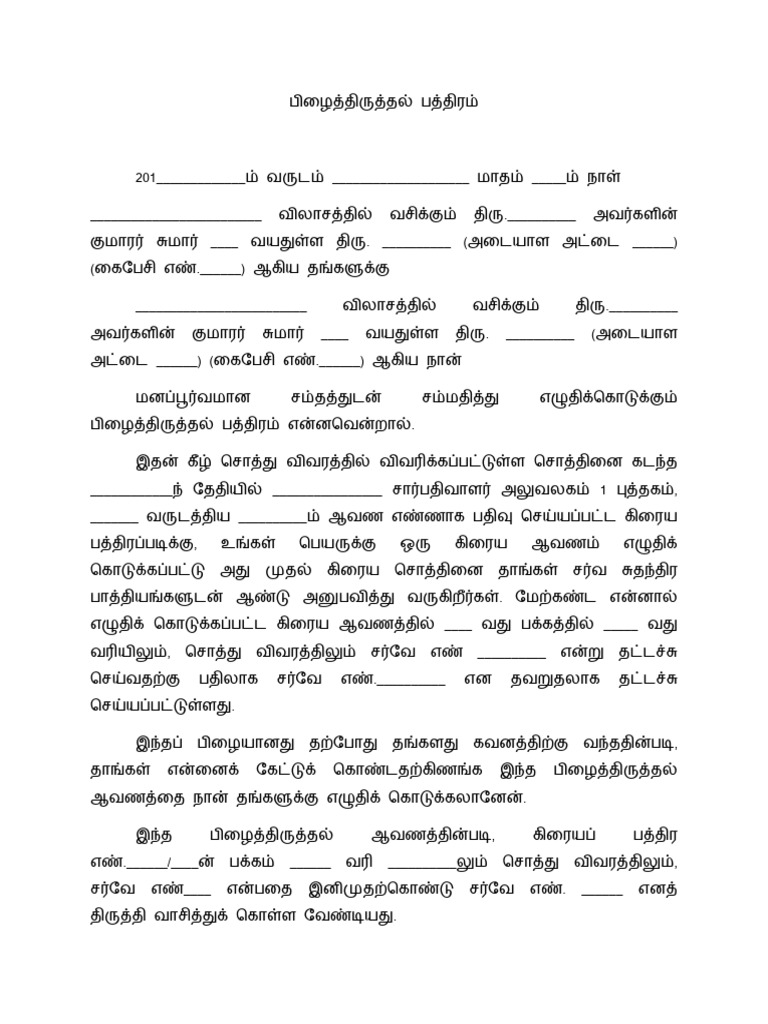 பிழைத்திருத்தல் பத்திரம்
201_____________ம் வருடம் ____________________ மாதம் _____ம் நாள்
_________________________ விலாசத்தில் வசிக்கும் திரு.__________ அவர்களின்
குமாரர் சுமார் ____ வயதுள்ள திரு. __________ (அடையாள அட்டை ______)
(கைபேசி எண்.______) ஆகிய தங்களுக்கு
_________________________ விலாசத்தில் வசிக்கும் திரு.__________
அவர்களின் குமாரர் சுமார் ____ வயதுள்ள திரு. __________ (அடையாள
அட்டை ______) (கைபேசி எண்.______) ஆகிய நான்
மனப்பூர்வமான சம்தத்துடன் சம்மதித்து எழுதிக்கொடுக்கும்
பிழைத்திருத்தல் பத்திரம் என்னவென்றால்.
இதன் கீழ் சொத்து விவரத்தில் விவரிக்கப்பட்டுள்ள சொத்தினை கடந்த
____________ந் தேதியில் ________________ சார்பதிவாளர் அலுவலகம் 1 புத்தகம்,
_______ வருடத்திய __________ம் ஆவண எண்ணாக பதிவு செய்யப்பட்ட கிரைய
பத்திரப்படிக்கு, உங்கள் பெயருக்கு ஒரு கிரைய ஆவணம் எழுதிக்
கொடுக்கப்பட்டு அது முதல் கிரைய சொத்தினை தாங்கள் சர்வ சுதந்திர
பாத்தியங்களுடன் ஆண்டு அனுபவித்து வருகிறீர்கள். மேற்கண்ட என்னால்
எழுதிக் கொடுக்கப்பட்ட கிரைய ஆவணத்தில் ____ வது பக்கத்தில் _____ வது
வரியிலும், சொத்து விவரத்திலும் சர்வே எண் __________ என்று தட்டச்சு
செய்வதற்கு பதிலாக சர்வே எண்.__________ என தவறுதலாக தட்டச்சு
செய்யப்பட்டுள்ளது.
இந்தப் பிழையானது தற்போது தங்களது கவனத்திற்கு வந்ததின்படி,
தாங்கள் என்னைக் கேட்டுக் கொண்டதற்கிணங்க இந்த பிழைத்திருத்தல்
ஆவணத்தை நான் தங்களுக்கு எழுதிக் கொடுக்கலானேன்.
இந்த பிழைத்திருத்தல் ஆவணத்தின்படி, கிரையப் பத்திர
எண்.______/____ன் பக்கம் ______ வரி __________லும் சொத்து விவரத்திலும்,
சர்வே எண்____ என்பதை இனிமுதற்கொண்டு சர்வே எண். ______ எனத்
திருத்தி வாசித்துக் கொள்ள வேண்டியது.